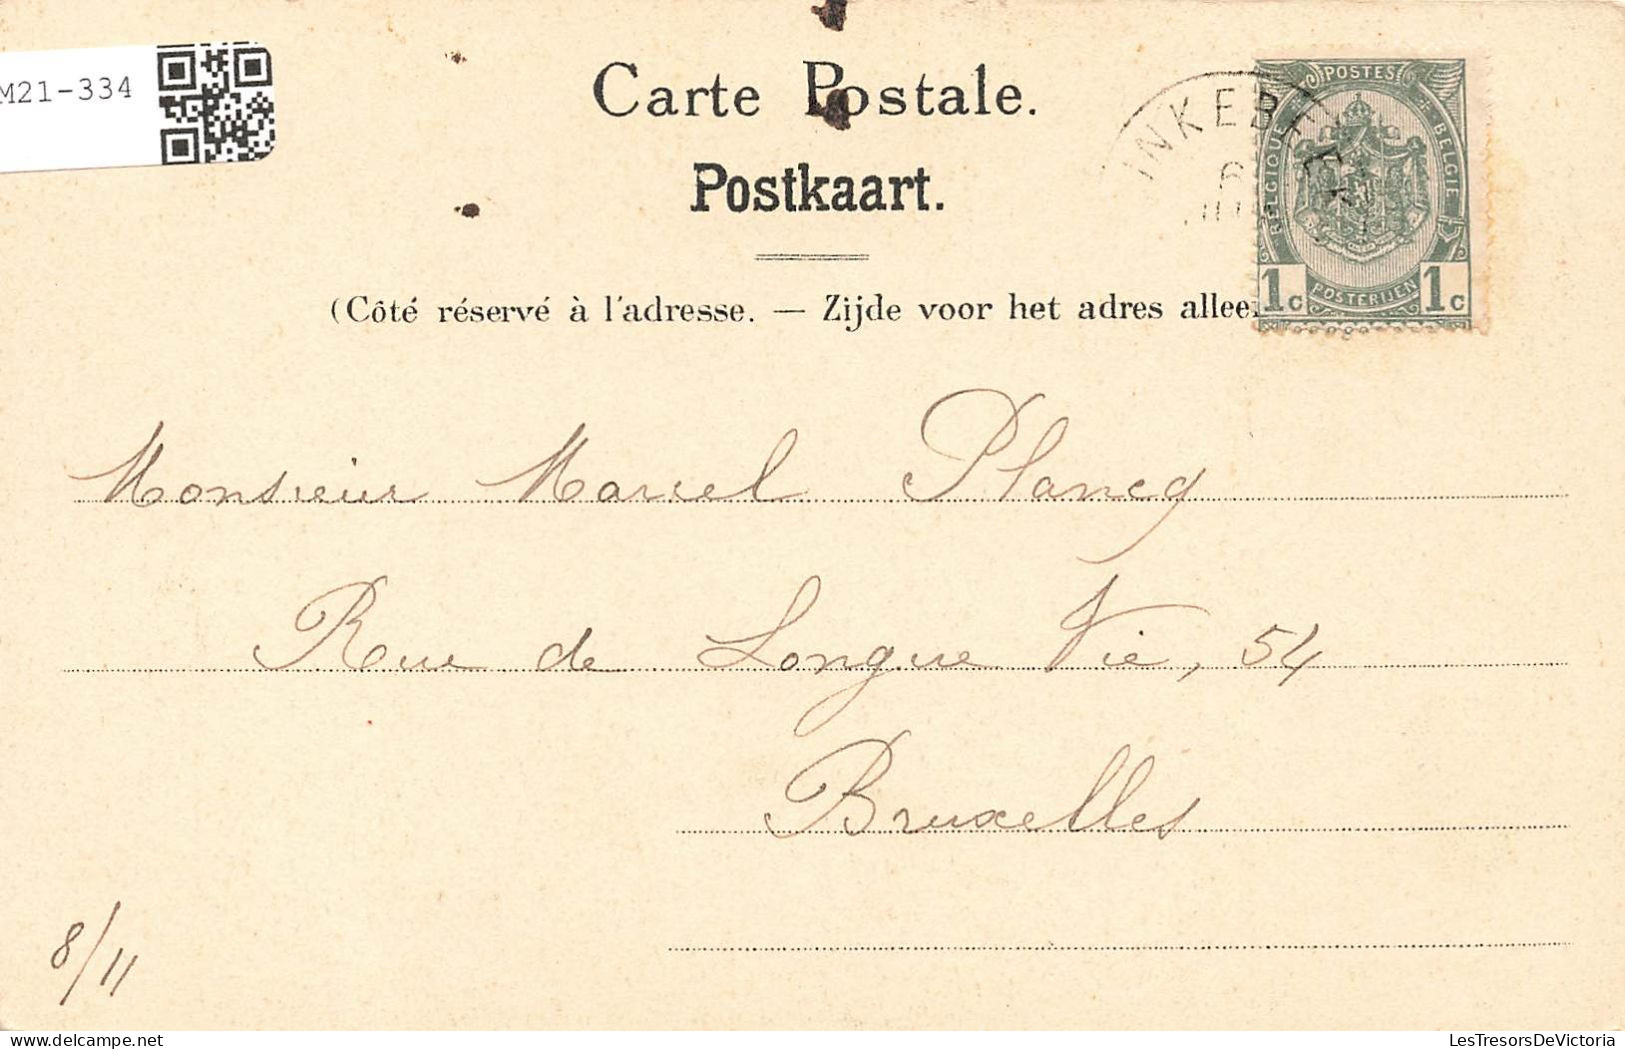 M21-334
Carte Postale.
Postkaart.
(Côté réservé à l'adresse. — Zijde voor het adres alleen
INKEB
6
POSTES
BELGIQUE
BELGIE
1c POSTERIJEN 1c
Monsieur Marcel Plancq
Rue de Longue Vie, 54
Bruxelles
8/11
LesTresorsDeVictoria